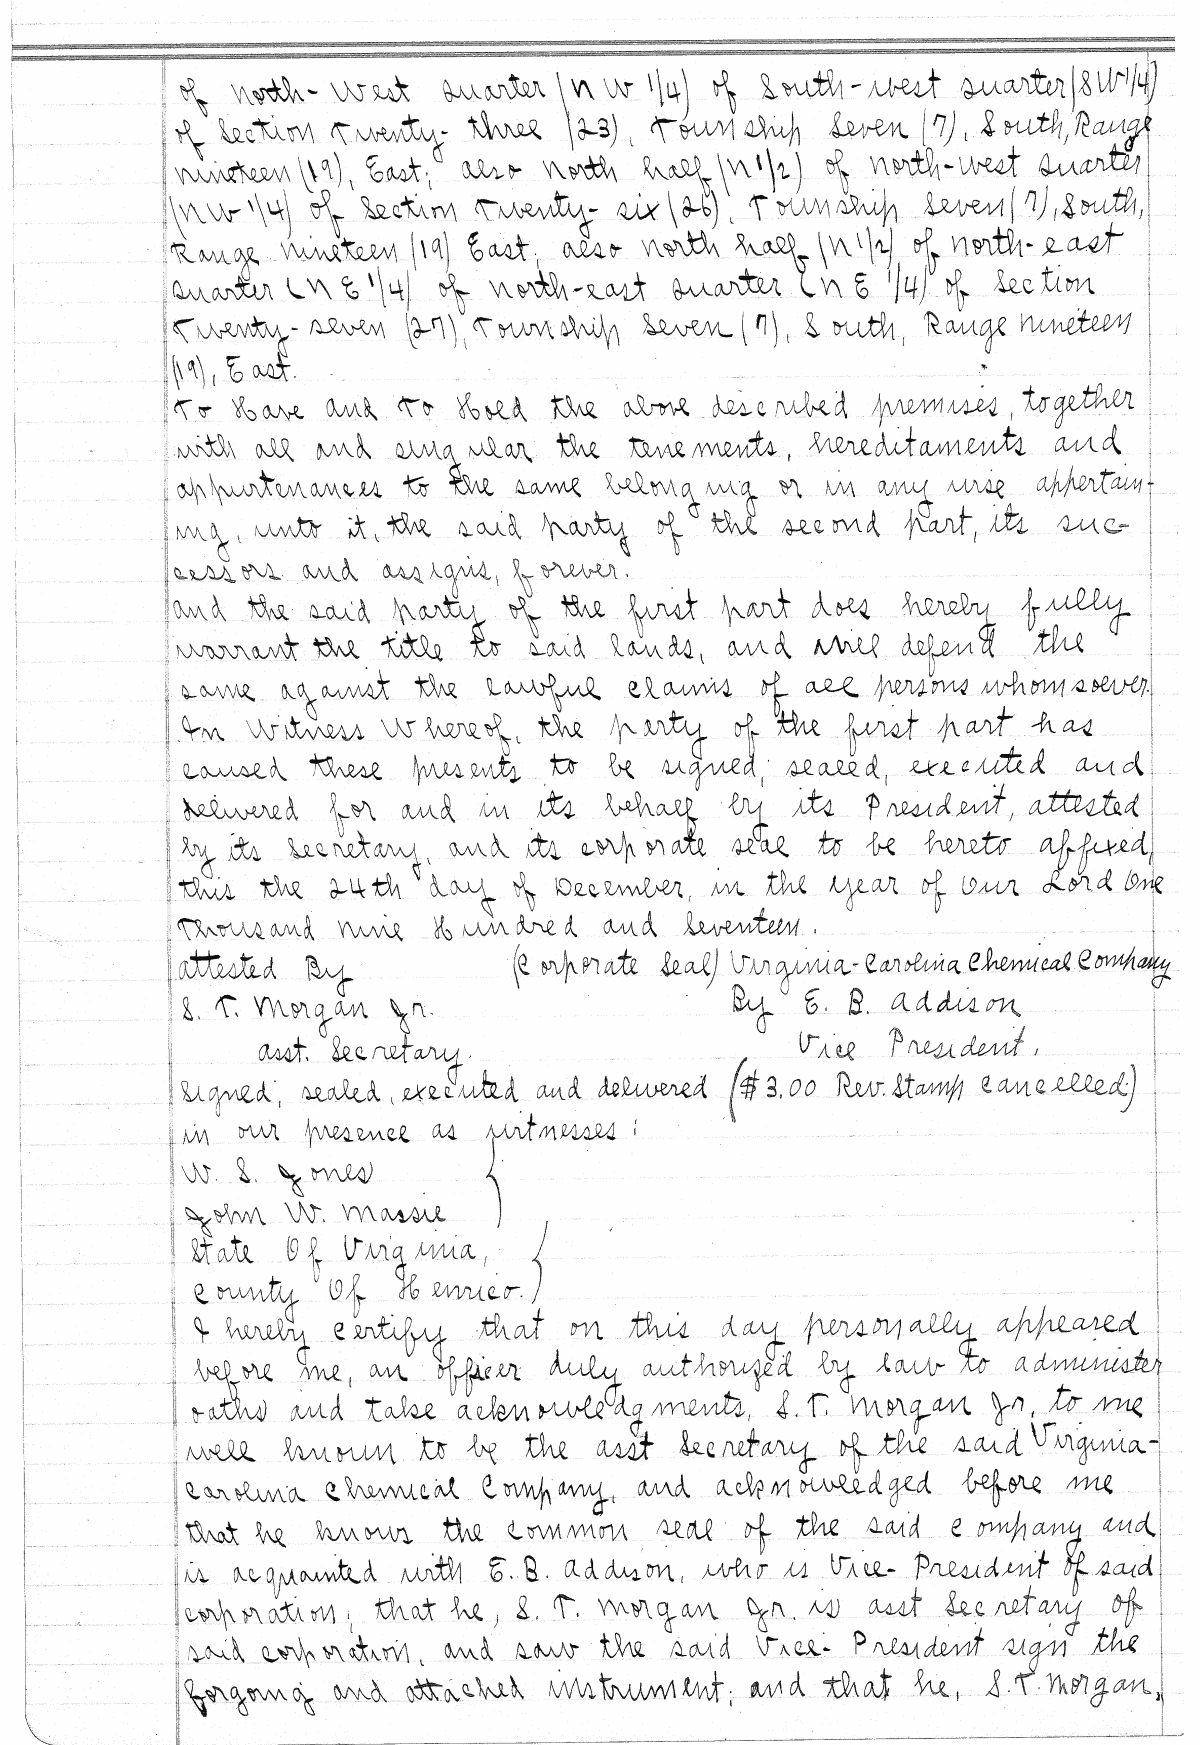 of North-West Quarter (N W 1/4) of South-west Quarter (S W 1/4)
of Section Twenty-three (23), Township Seven (7), South, Range
nineteen (19), East; also North half (N 1/2) of north-west Quarter
(N W 1/4) of Section Twenty-six (26), Township Seven (7), South,
Range nineteen (19) East; also north half (N 1/2) of north-east
Quarter (N E 1/4) of north-east Quarter (N E 1/4) of Section
Twenty-seven (27), Township Seven (7), South, Range nineteen
(19), East.
To Have and To Hold the above described premises, together
with all and singular the tenements, hereditaments and
appurtenances to the same belonging or in any wise appertain-
ing, unto it, the said party of the second part, its suc-
cessors and assigns, forever.
And the said party of the first part does hereby fully
warrant the title to said lands, and will defend the
same against the lawful claims of all persons whomsoever.
In Witness Whereof, the party of the first part has
caused these presents to be signed, sealed, executed and
delivered for and in its behalf by its President, attested
by its Secretary, and its corporate seal to be hereto affixed,
this the 24th day of December, in the year of Our Lord One
Thousand Nine Hundred and Seventeen.
Attested By (Corporate Seal) Virginia-Carolina Chemical Company
S. T. Morgan Jr. By E. B. Addison
Asst. Secretary. Vice President.
Signed, sealed, executed and delivered ($3.00 Rev. Stamp cancelled)
in our presence as witnesses:
W. S. Jones
John W. Massie
State Of Virginia,
County Of Henrico.
I hereby certify that on this day personally appeared
before me, an officer duly authorized by law to administer
oaths and take acknowledgments, S. T. Morgan Jr, to me
well known to be the Asst Secretary of the said Virginia-
Carolina Chemical Company, and acknowledged before me
that he knows the common seal of the said company and
is acquainted with E. B. Addison, who is Vice-President of said
corporation; that he, S. T. Morgan Jr. is Asst Secretary of
said corporation, and saw the said Vice-President sign the
forgoing and attached instrument; and that he, S. T. Morgan,